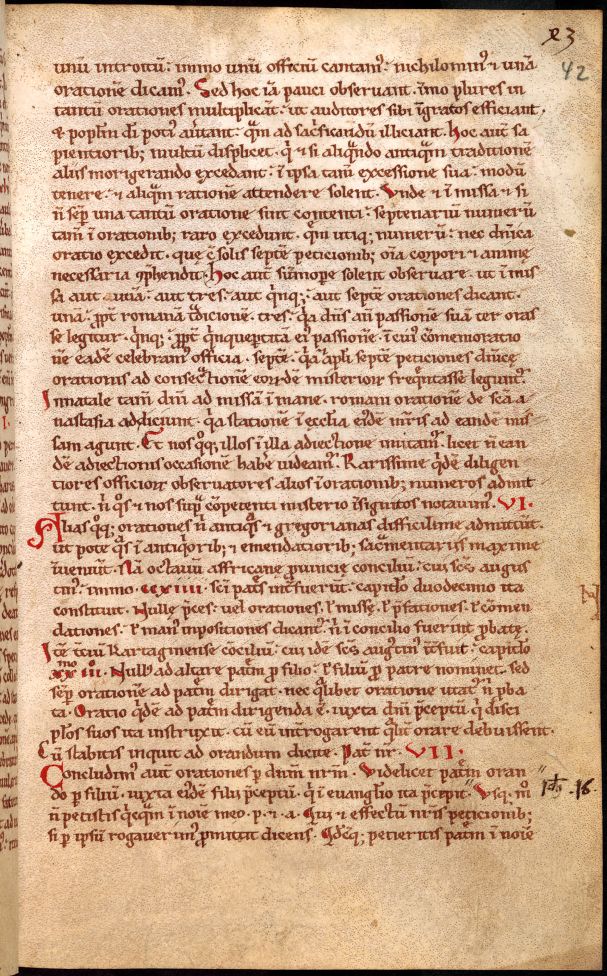 23
42
unū introitū: immo unū officiū cantam᷒: nichilomin᷒ ⁊ unā
oratione dicam᷒. Sed hoc iā pauci observant. īmo plures in
tantū orationes multiplicāt: ut auditores sibi īgratos efficiant.
& poplm dī poti᷒ avtant: qm ad sacͥficandū illiciant. hoc aut̄ sa
pientiorib; multū displicet. qͥ ⁊ si aliqͣndo antiqͣm traditionē
aliis morigerando excedant: ī ipsa tam̄ excessione sua: modū
tenere: ⁊ aliqͣm rationē attendere solent. Vnde ⁊ ī missa ⁊ si
n̄ sep̄ una tantū oratione sint contenti: septenariū numerū
tam̄ ī orationib; raro excedunt. qm̄ utiq; numerū: nec dn̄ica
oratio excedit. que ī solis septē peticionib; oīa corpori ⁊ anime
necessaria ꝯphendit. hoc aut̄ sūmope solent observare. ut ī mis
sa aut unā: aut tres: aut qͥnq;: aut septē orationes dicant.
unā: ꝓpt̄ romanā tͣdicionē. tres: qͣ dn̄s an̄ passionē suā ter oras
se legitur. qͥnq;: ꝓpt̄ qͥnquep̄titā ei᷒ passionē: ī cui᷒ cōmemoratio
nē eadē celebram᷒ officia. septē: qͣ apl̄i septē peticiones dn̄icę
orationis ad consecͣtionē eorūdē misterioꝝ freqͥntasse legunt᷒.
In natale tam̄ dn̄i ad missā ī mane. romani orationē de scā a
nastasia addiciunt: qͣ stationē ī ecclīa eidē mr̄is ad eandē mis
sam agunt. Et nos qͦq; illos ī illa adiectione imitam᷒. licet n̄ ean
dē adiectionis occasionē habē videam᷒. Rarissime qͥdē diligen
tiores officioꝝ observatores alios ī orationib; numeros admit
tunt. n̄ qͦs ⁊ nos supͣ cōpetenti misterio īsignitos notavim᷒. VI.
Alias qͦq; orationes n̄ antiqͣs ⁊ gregorianas difficilime admittūt.
ut pote qͣs ī antiqͥorib; ⁊ emendatiorib; sacͣmentariis maxime
īveniūt. Nā octavū affricanę ꝓvincię conciliū: cui scs̄ augus
tin᷒: immo. ccxiiii. sc̄i pat̄s int̄fuerūt: capitl̄o duodecimo ita
constituit. Nullę p̄ces: vel orationes. ł missę. ł p̄fationes. ł cōmen
dationes. ł manuū inpositiones dicant᷒: n̄ ī concilio fuerint ꝓbatę.
Itē tciū Kartaginense cōciliū: cui idē scs̄ augtin᷒ īt̄fuit: capitl̄o
xxiii. Null᷒ ad altare patrē ꝓ filio: ł filiū ꝓ patre nominet. sed
sep̄ orationē ad pat̄m dirigat. nec qͣlibet oratione utat᷒ n̄ ꝓba
ta. Oratio qͥdē ad pat̄m dirigenda ē. iuxta dn̄i p̄ceptū. qͥ disci
plos suos ita instruxit. cū eū int̄rogarent qͣlit̄ orare debuissent.
Cū stabitis inquit ad orandum dicite. Pat̄ nr̄. VII.
Concludim᷒ aut̄ orationes ꝑ dn̄m nr̄m. Videlicet pat̄m oran
do ꝑ filiū. iuxta eidē filii p̄ceptū. qͥ ī evangl̄io ita p̄cepit. Usq; m̊
n̄ petistis qͥcqͣm ī noīe meo. p. ⁊. a. Qui ⁊ effectū nr̄is peticionib;
si ꝑ ipsū rogaverim᷒ ꝓmittit dicens. Qͦdcūq; petieritis pat̄m ī noīe